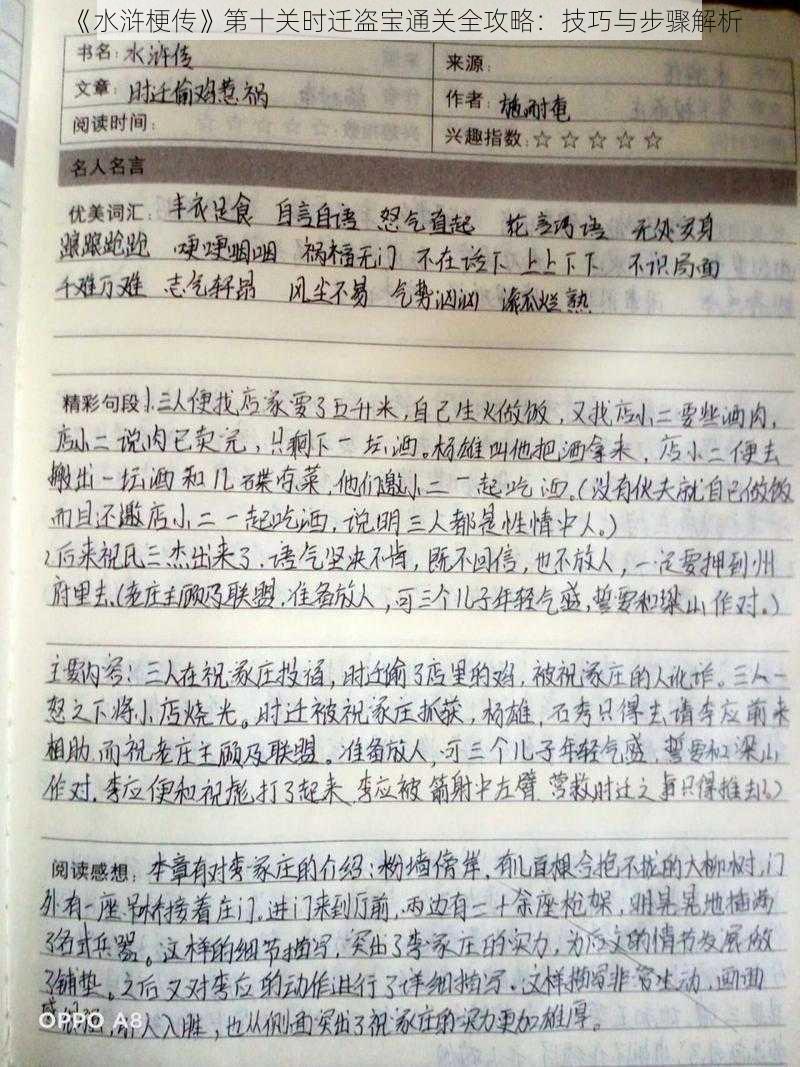 《水浒梗传》第十关时迁盗宝通关全攻略：技巧与步骤解析
书名：水浒传
来源：
文章：时迁偷鸡惹祸
作者：施耐庵
阅读时间：
兴趣指数：☆☆☆☆☆
名人名言
优美词汇：丰衣足食 自言自语 怒气直起 花言巧语 无处安身
踉踉跄跄 哽哽咽咽 祸福无门 不在话下 上上下下 不识局面
千难万难 志气轩昂 风尘不易 气势汹汹 滚瓜烂熟
精彩句段 1.三人便找店家要了五升米，自己生火做饭，又找店小二要些酒肉，
店小二说肉已卖完，只剩下一坛酒。杨雄叫他把酒拿来，店小二便去
搬出一坛酒和几碟凉菜，他们邀小二一起吃酒。（没有伙夫就自己做饭
而且还邀店小二一起吃酒，说明三人都是性情中人。）
2后来祝氏三杰出来了，语气坚决不肯，既不回信，也不放人，一定要押到州
府里去。（老庄主顾及联盟，准备放人，可三个儿子年轻气盛，誓要和梁山作对。）
主要内容：三人在祝家庄投宿，时迁偷了店里的鸡，被祝家庄的人讹诈。三人一
怒之下将小店烧光。时迁被祝家庄抓获，杨雄，石秀只得去请李应前来
相助，而祝老庄主顾及联盟。准备放人，可三个儿子年轻气盛，誓要和梁山
作对，李应便和祝彪打了起来，李应被箭射中左臂，营救时迁之事只得推去。）
阅读感想：本章有对李家庄的介绍：粉墙傍岸，有几百根合抱不拢的大柳树，门
外有一座吊桥接着庄门。进门来到厅前，两边有二十余座枪架，明晃晃地插满
了各式兵器。这样的细节描写，突出了李家庄的实力，为后文的情节发展做
了铺垫。之后又对李应的动作进行了详细描写。这样描写非常生动，画面
感 引人入胜，也从侧面突出了祝家庄的实力更加雄厚。
OPPO A8